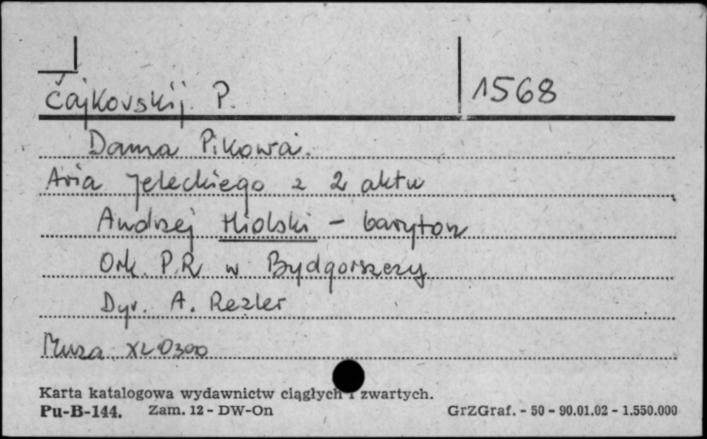 Čajkovskij. P. 1568
Dama Pikowa.
Aria Jeleckiego z 2 aktu
Andrzej Hiolski - baryton
Ork. P.R. w Bydgoszczy
Dyr. A. Rezler
Muza XL 0300
Karta katalogowa wydawnictw ciągłych i zwartych.
Pu-B-144. Zam. 12 - DW-On GrZGraf. - 50 - 90.01.02 - 1.550.000